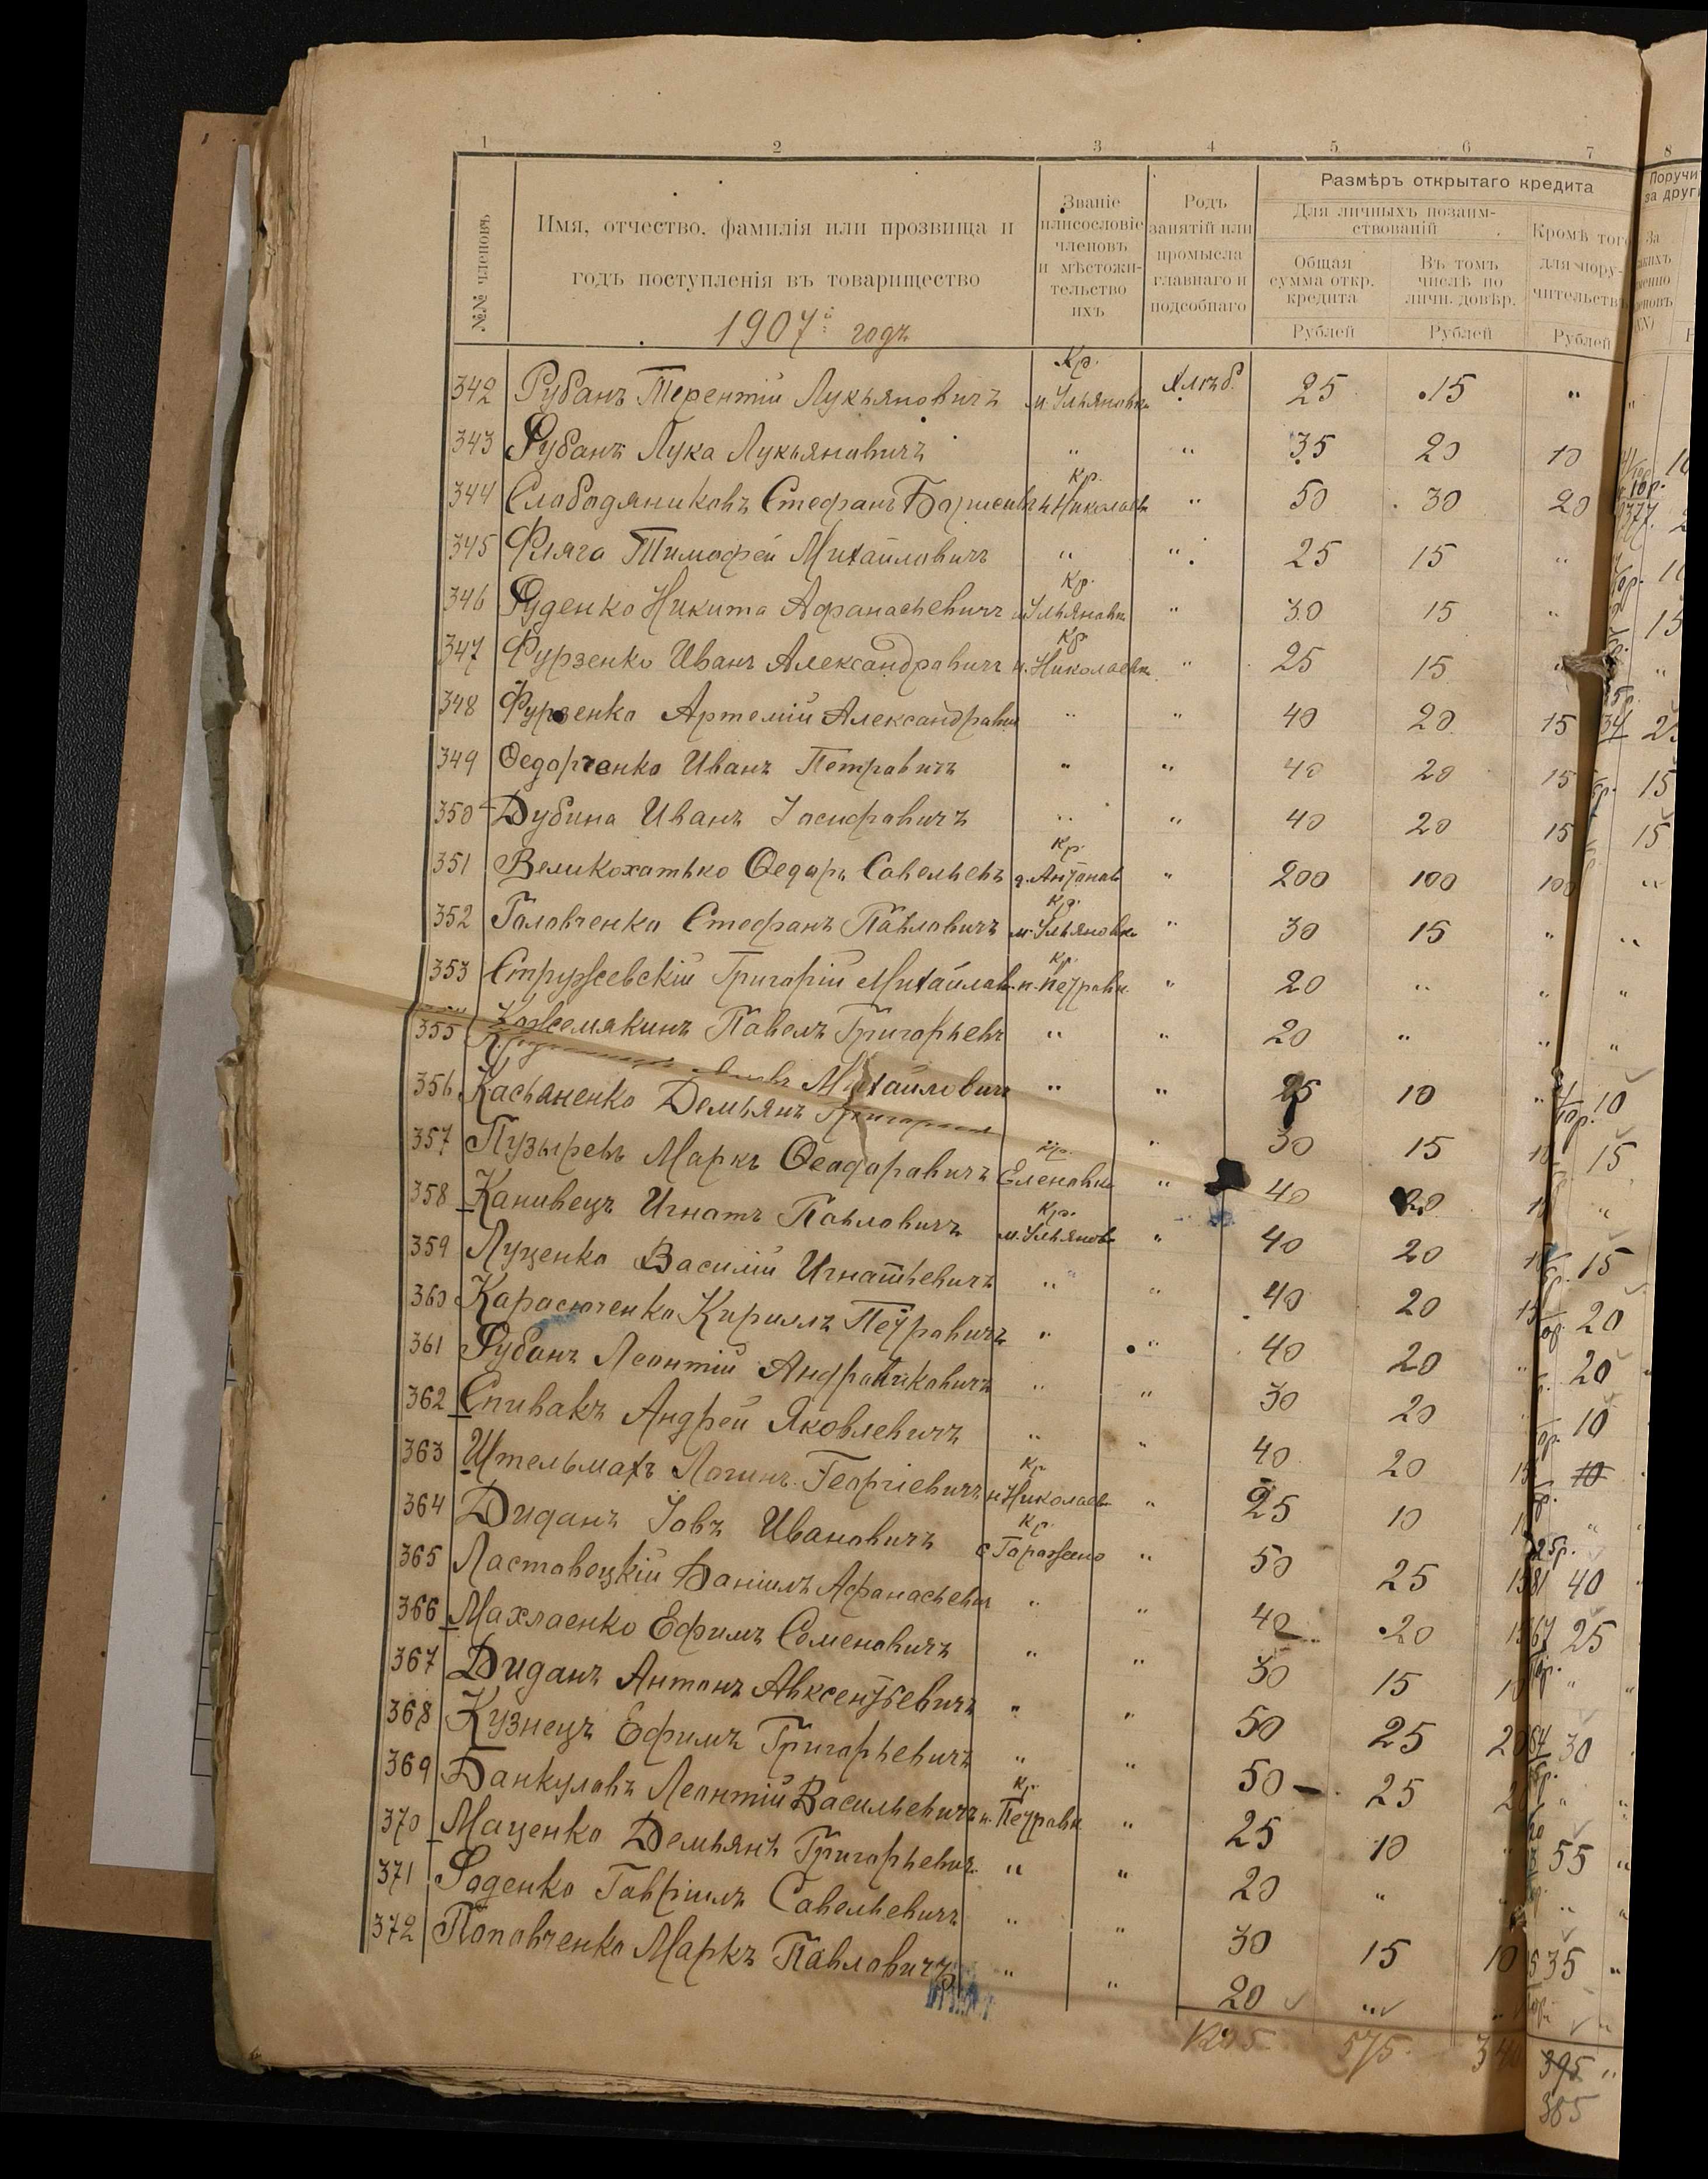 1 2 3 4 5 6 7 8
№№ членовъ
Имя, отчество, фамилія или прозвища и
годъ поступленія въ товарищество
1907й годъ
Званіе
или сословіе
членовъ
и мѣстожи-
тельство
ихъ
Родъ
занятій или
промысла
главнаго и
подсобнаго
Размѣръ открытаго кредита
Для личныхъ позаим-
ствованій
Общая
сумма откр.
кредита
Рублей
Въ томъ
числѣ по
личн. довѣр.
Рублей
Кромѣ того
для пору-
чительства
Рублей
Поручи
за друг
За
342 Рубанъ Терентій Лукьяновичъ Кр. м. Ульяновка Хлѣб. 25 15 "
343 Рубанъ Лука Лукьяновичъ " " 35 20 10
344 Слободяниковъ Стефанъ Борисовъ Кр. Николаев " 50 30 20
345 Фляга Тимофей Михайловичъ " " 25 15 "
346 Руденко Никита Афанасьевичъ Кр. Ульяновк " 30 15 " 15
347 Фурзенко Иванъ Александровичъ Кр. н. Николаевк " 25 15 " "
348 Фурзенко Артемій Александрови " " 40 20 15
349 Ѳедорченко Иванъ Петровичъ " " 40 20 15 15
350 Дубина Иванъ Іосифовичъ " " 40 20 15 15
351 Великохатько Ѳедоръ Савельевъ Кр. д. Антонов " 200 100 100 "
352 Головченко Стефанъ Павловичъ Кр. м. Ульяновк " 30 15 " "
353 Стружевскій Григорій Михайлов Кр. н. Петровк " 20 " " "
355 Кожемякинъ Павелъ Григорьевъ " " 20 " " "
Михайлович
356 Касьяненко Демьянъ Григория " " 25 10 " 10
357 Пузыревъ Маркъ Ѳеодоровичъ Кр. Еленовка " 30 15 10 15
358 Канивецъ Игнатъ Павловичъ Кр. м. Ульянов " 40 20 "
359 Луценко Василій Игнатьевичъ " " 40 20 15
360 Карасюченко Кириллъ Петровичъ " " 40 20 15 20
361 Рубанъ Леонтій Андрониковичъ " " 40 20 " 20
362 Спивакъ Андрей Яковлевичъ " " 30 20 10
363 Штельмахъ Логинъ Георгіевичъ Кр. н. Николаев " 40 20 10
364 Диданъ Іовъ Ивановичъ Кр. с " 25 10 "
365 Ластовецкій Даніилъ Афанасьеви " " 50 25 40
366 Махлаенко Ефимъ Семеновичъ " " 40 20 25
367 Диданъ Антонъ Авксентьевичъ " " 30 15 10 "
368 Кузнецъ Ефимъ Григорьевичъ " " 50 25 20 30
369 Банкуловъ Леонтій Васильевичъ Кр. н. Петровк " 50 25 "
370 Маценко Демьянъ Григорьевич " " 25 10 55 "
371 Роденко Гавріилъ Савельевичъ " " 20 " " "
372 Поповченко Маркъ Павловичъ " " 30 15 10 35 "
20 " "
575 395 "
385